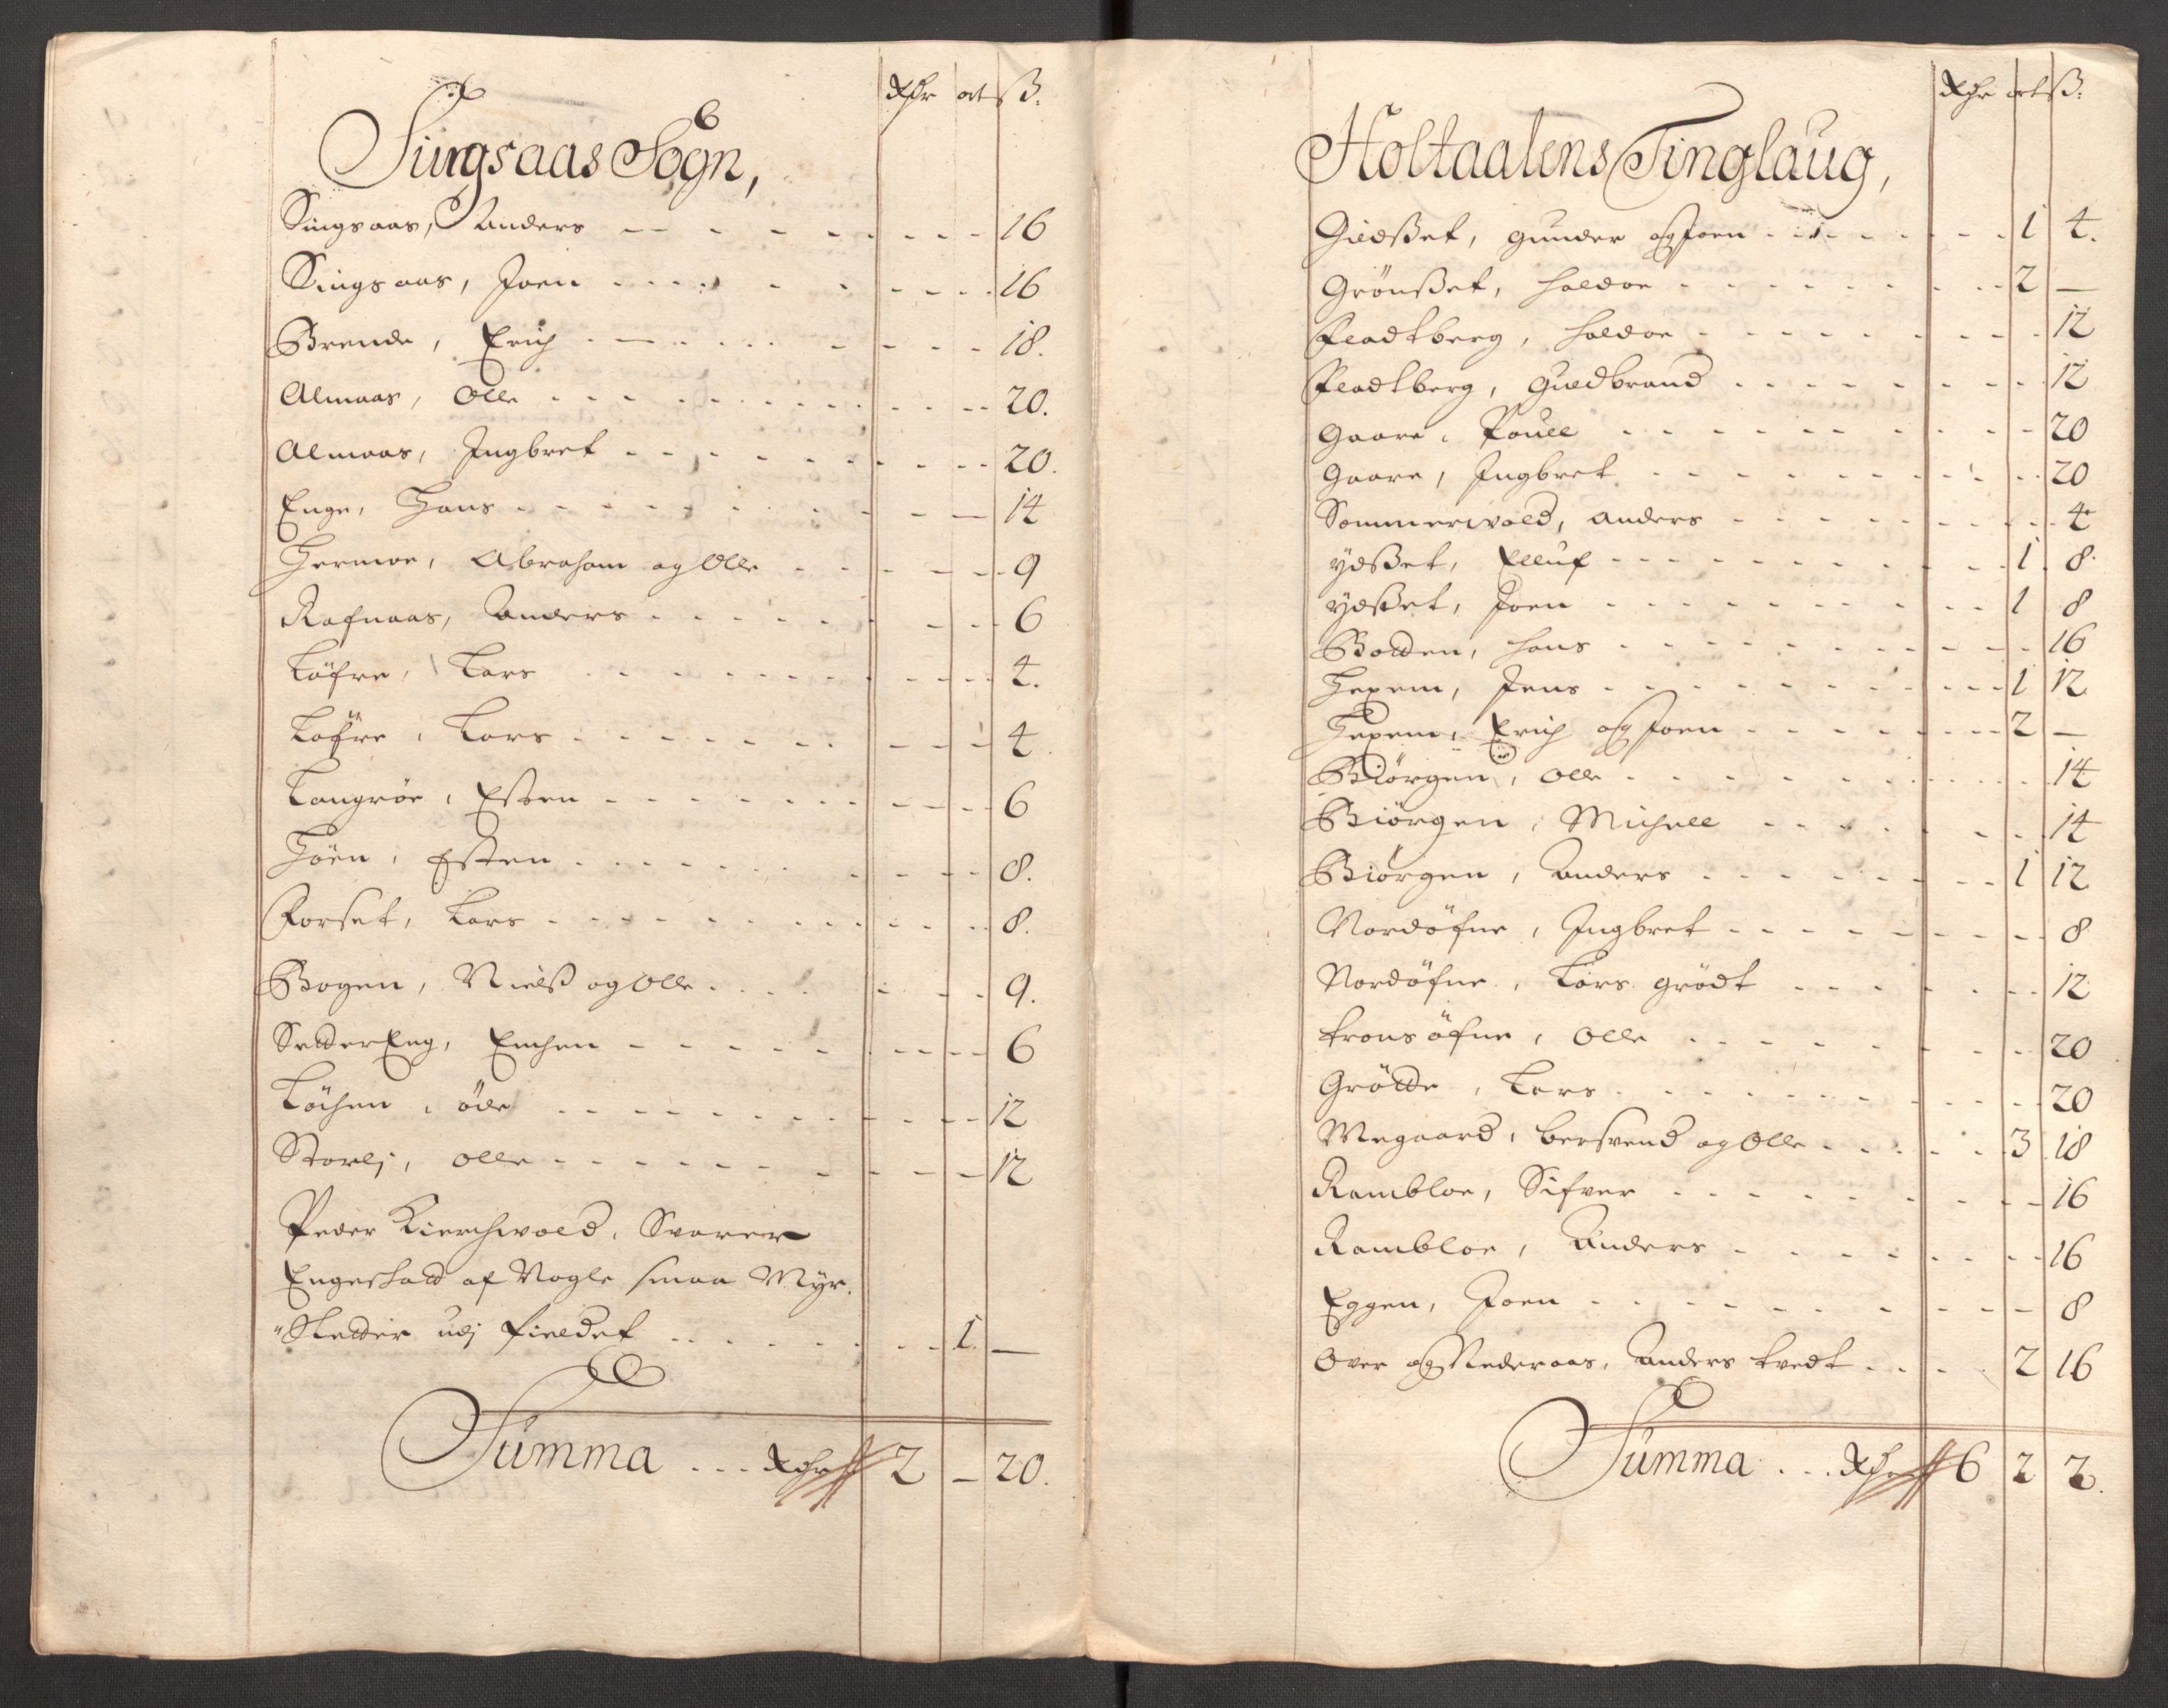 Rdr ort ß.
Singsaas Sogn,
Singsaas, Anders - - - - - - - - 16
Singsaas, Joen - - - - - - - - 16
Brende, Erich - - - - - - - - 18.
Almaas, Olle - - - - - - - - 20.
Almaas, Ingbret - - - - - - - - 20.
Enge, Hans - - - - - - - - 14
Hermoe, Abraham og Olle - - - - - 9
Rafnaas, Anders - - - - - - - - 6
Løfre, Lars - - - - - - - - 4.
Løfre, Lars - - - - - - - - 4
Langrøe, Esten - - - - - - - - 6
Høen, Esten - - - - - - - - 8.
Forset, Lars - - - - - - - - 8.
Bogen, Nielß og Olle - - - - - - 9.
SedderEng, Emhen - - - - - - - - 6
Løchen, øde - - - - - - - - 12
Storlj, Olle - - - - - - - - 12
Peder Kierchwold, Svarer
Engeskatt af Nogle smaa Myr-
Sletter udj fieldet - - - - - 1. —
Summa ... Rdr 2 — 20.
Rdr ort ß.
Holtaalens Tinglaug,
Giedßet, Gunder og Joen - - - - 1 4.
Grønßet, Haldor - - - - - - - - 2 —
Fladtberg, Haldor - - - - - - - - 12
Fladtberg, Guldbrand - - - - - - - - 12
Gaare, Pouell - - - - - - - - 20
Gaare, Ingbret - - - - - - - - 20
Sommerwold, Anders - - - - - - - - 4
Ydßet, Elluf - - - - - - - - 1 8.
Ydßet, Joen - - - - - - - - 1 8
Bolden, Hans - - - - - - - - 16
Hexem, Jens - - - - - - - - 1 12
Hexem, Erich og Joen - - - - - - 2 —
Biørgen, Olle - - - - - - - - 14
Biørgen, Michell - - - - - - 14
Biørgen, Anders - - - - - - - - 1 12
Nordøfne, Ingbret - - - - - - - - 8
Nordøfne, Lars Grødt - - - - - - 12
Kronsøfne, Olle - - - - - - - - 20
Grøtte, Lars - - - - - - - - 20
Megaard, Bersvend og Olle - - - - 3 18
Rambloe, Sifver - - - - - - - - 16
Rambloe, Anders - - - - - - - - 16
Eggen, Joen - - - - - - - - 8
Over og Nederaas, Anders Tvedt - - - 2 16
Summa ... Rdr 6 2 2.